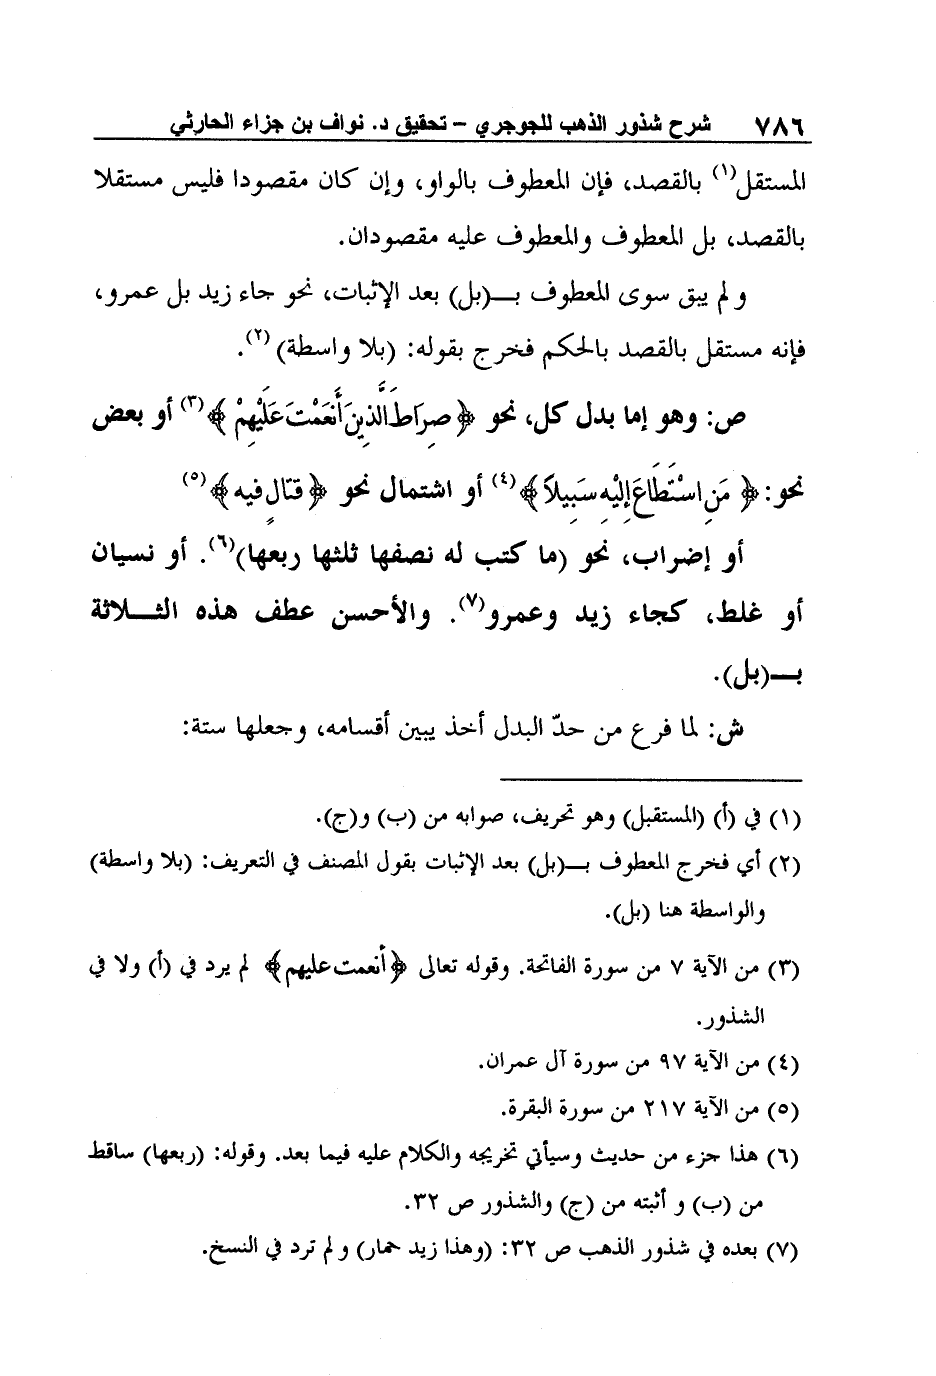 ٧٨٦ شرح شذور الذهب للجوجري – تحقيق د. نواف بن جزاء الحارثي
المستقل(١) بالقصد، فإن المعطوف بالواو، وإن كان مقصودا فليس مستقلا
بالقصد، بل المعطوف والمعطوف عليه مقصودان.
ولم يبق سوى المعطوف بـ(بل) بعد الإثبات، نحو جاء زيد بل عمرو،
فإنه مستقل بالقصد بالحكم فخرج بقوله: (بلا واسطة) (٢).
ص: وهو إما بدل كل، نحو ﴿صِرَاطَ الَّذِينَ أَنْعَمْتَ عَلَيْهِمْ﴾(٣) أو بعض
نحو: ﴿مَنِ اسْتَطَاعَ إِلَيْهِ سَبِيلاً﴾(٤) أو اشتمال نحو ﴿قتالٍ فيه﴾(٥)
أو إضراب، نحو (ما كتب له نصفها ثلثها ربعها)(٦). أو نسيان
أو غلط، كجاء زيد وعمرو(٧). والأحسن عطف هذه الثلاثة
بـ(بل).
ش: لما فرغ من حدّ البدل أخذ يبين أقسامه، وجعلها ستة:
(١) في (أ) (المستقبل) وهو تحريف، صوابه من (ب) و(ج).
(٢) أي فخرج المعطوف بـ(بل) بعد الإثبات بقول المصنف في التعريف: (بلا واسطة)
والواسطة هنا (بل).
(٣) من الآية ٧ من سورة الفاتحة. وقوله تعالى ﴿أنعمت عليهم﴾ لم يرد في (أ) ولا في
الشذور.
(٤) من الآية ٩٧ من سورة آل عمران.
(٥) من الآية ٢١٧ من سورة البقرة.
(٦) هذا جزء من حديث وسيأتي تخريجه والكلام عليه فيما بعد. وقوله: (ربعها) ساقط
من (ب) و أثبته من (ج) والشذور ص ٣٢.
(٧) بعده في شذور الذهب ص ٣٢: (وهذا زيد حمار) ولم ترد في النسخ.